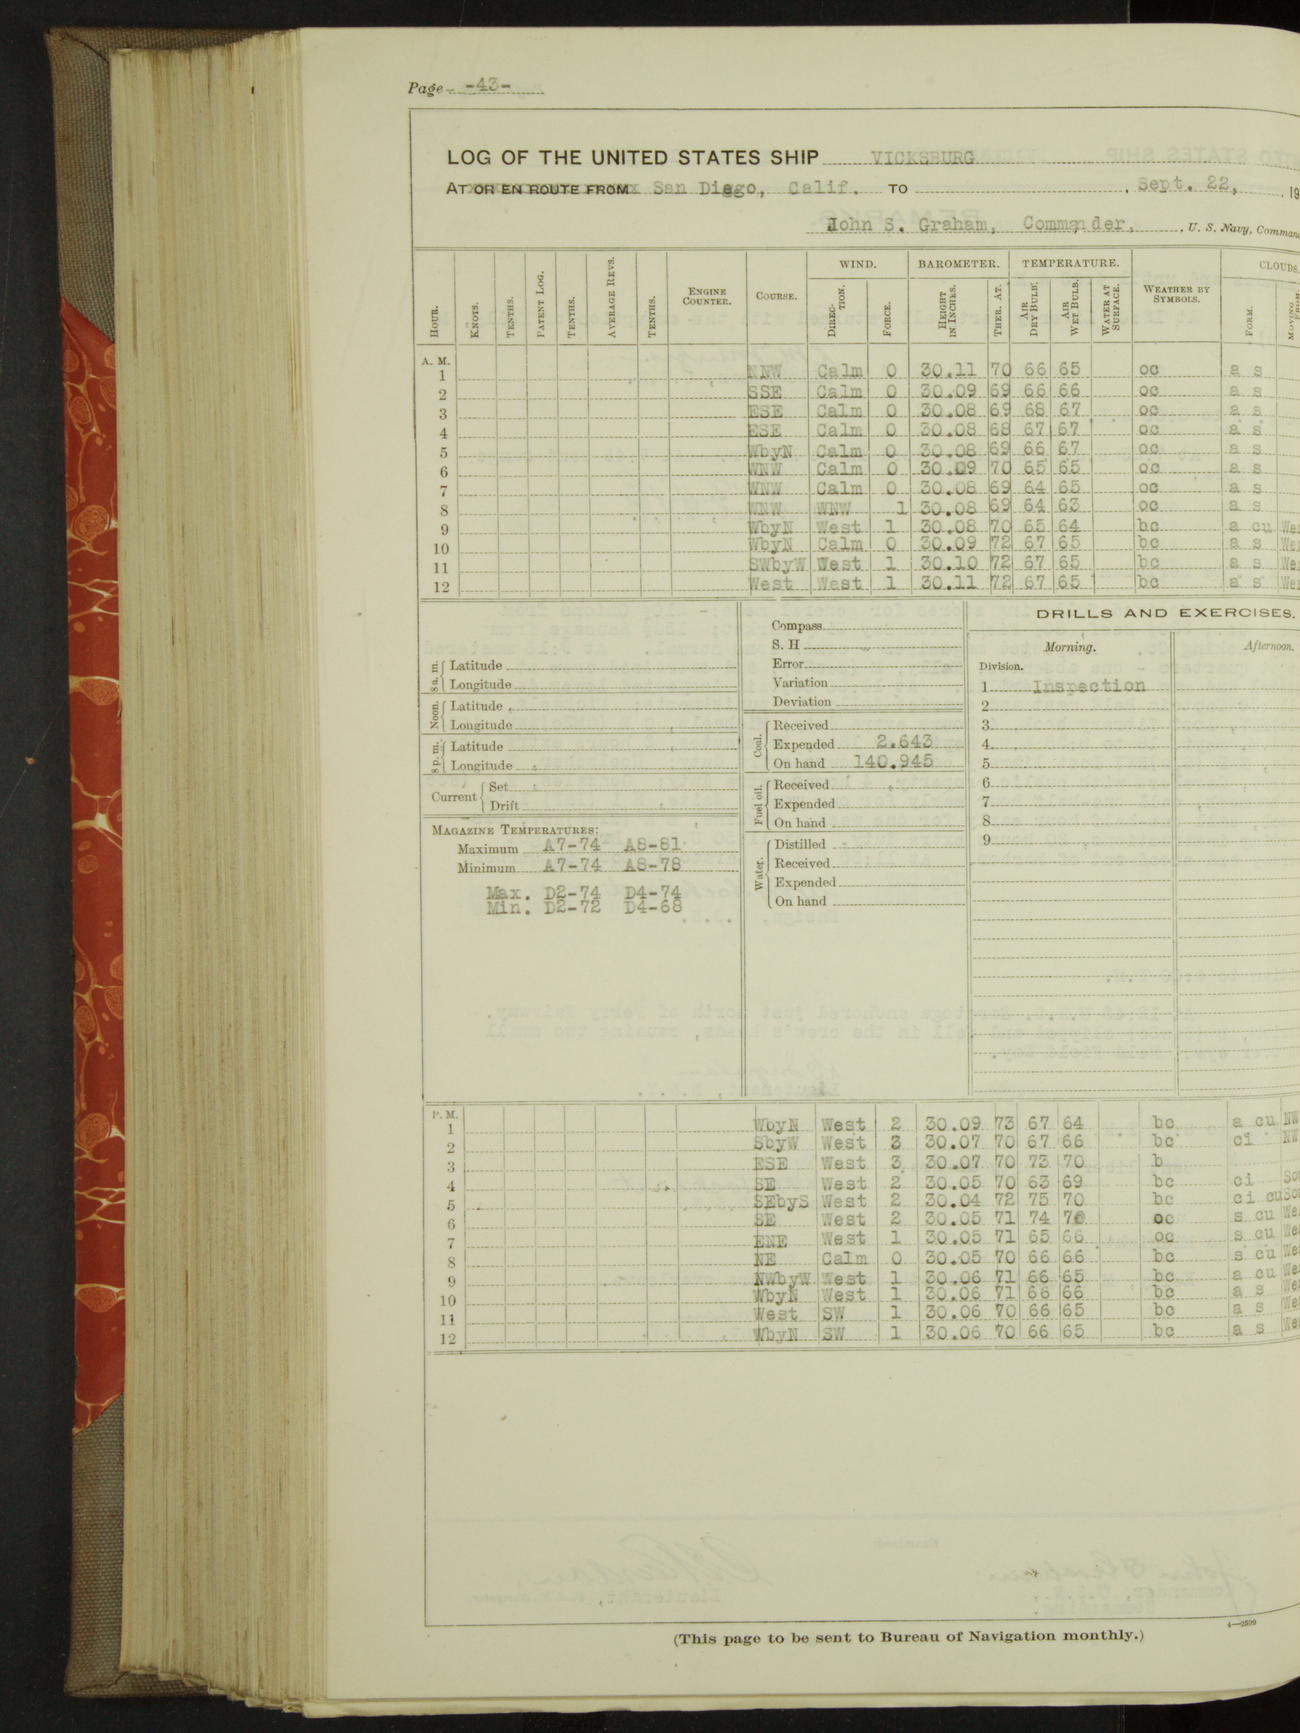 Page -43-
LOG OF THE UNITED STATES SHIP VICKSBURG
AT OR EN ROUTE FROM San Diego, Calif. TO , Sept. 22, , 19
John S. Graham, Commander, , U. S. Navy,
WIND. BAROMETER. TEMPERATURE. CLOUDS.
HOUR. KNOTS. TENTHS. PATENT LOG. TENTHS. AVERAGE REVS. TENTHS. ENGINE COUNTER. COURSE. DIRECTION. FORCE. HEIGHT IN INCHES. THER. AT. AIR DRY BULB. AIR WET BULB. WATER AT SURFACE. WEATHER BY SYMBOLS. FORM. MOVING
A. M.
1 NNW Calm 0 30.11 70 66 65 oc a s
2 SSE Calm 0 30.09 69 66 66 oc a s
3 ESE Calm 0 30.08 69 68 67 oc a s
4 ESE Calm 0 30.08 68 67 67 oc a s
5 WbyN Calm 0 30.08 69 66 67 oc a s
6 WNW Calm 0 30.09 70 65 65 oc a s
7 WNW Calm 0 30.08 69 64 65 oc a s
8 WNW WNW 1 30.08 69 64 63 oc a s
9 WbyN West 1 30.08 70 65 64 bc a cu
10 WbyN Calm 0 30.09 72 67 65 bc a s
11 SWbyW West 1 30.10 72 67 65 bc a s
12 West West 1 30.11 72 67 65 bc a s
8 a. m. Latitude
Longitude
Noon. Latitude
Longitude
8 p. m. Latitude
Longitude
Current Set
Drift
MAGAZINE TEMPERATURES:
Maximum A7-74 A8-81
Minimum A7-74 A8-78
Max. D2-74 D4-74
Min. D2-72 D4-68
Compass
S. H
Error
Variation
Deviation
Coal. Received
Expended 2.643
On hand 140.945
Fuel oil. Received
Expended
On hand
Water. Distilled
Received
Expended
On hand
DRILLS AND EXERCISES.
Morning. Afternoon.
Division.
1 Inspection
2
3
4
5
6
7
8
9
P. M.
1 WbyN West 2 30.09 73 67 64 bc a cu NW
2 SbyW West 3 30.07 70 67 66 bc ci NW
3 ESE West 3 30.07 70 73 70 b
4 SE West 2 30.05 70 63 69 bc ci
5 SEbyS West 2 30.04 72 75 70 bc ci cu
6 SE West 2 30.05 71 74 70 oc s cu
7 ENE West 1 30.05 71 65 66 oc s cu
8 NE Calm 0 30.05 70 66 66 bc s cu
9 NWbyW West 1 30.06 71 66 65 bc a cu
10 WbyN West 1 30.06 71 66 66 bc a s
11 West SW 1 30.06 70 66 65 bc a s
12 WbyN SW 1 30.06 70 66 65 bc a s
4—2599
(This page to be sent to Bureau of Navigation monthly.)